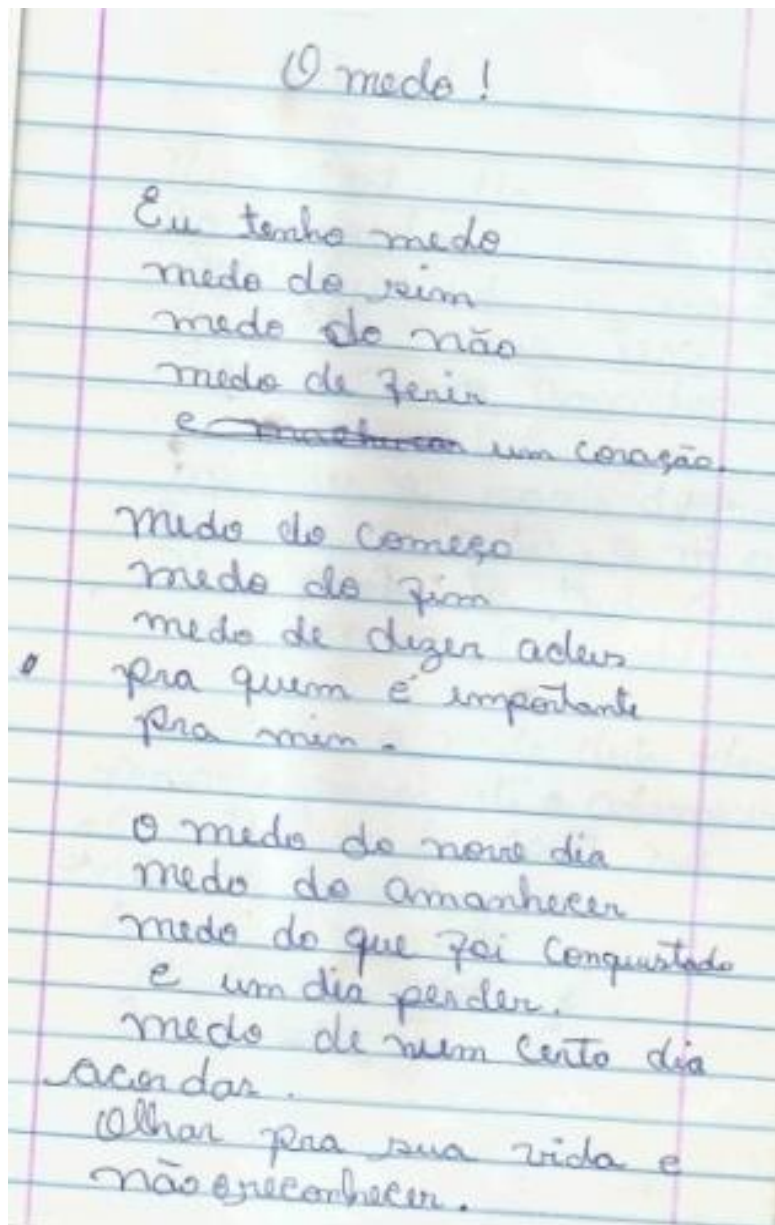 O medo!
Eu tenho medo
medo do sim
medo do não
medo de ferir
e machucar um coração.
medo do começo
medo do fim
medo de dizer adeus
pra quem é importante
pra min.
O medo do novo dia
medo do amanhecer
medo do que foi conquistado
e um dia perder.
medo de num certo dia
acordar.
Olhar pra sua vida e
não o reconhecer.